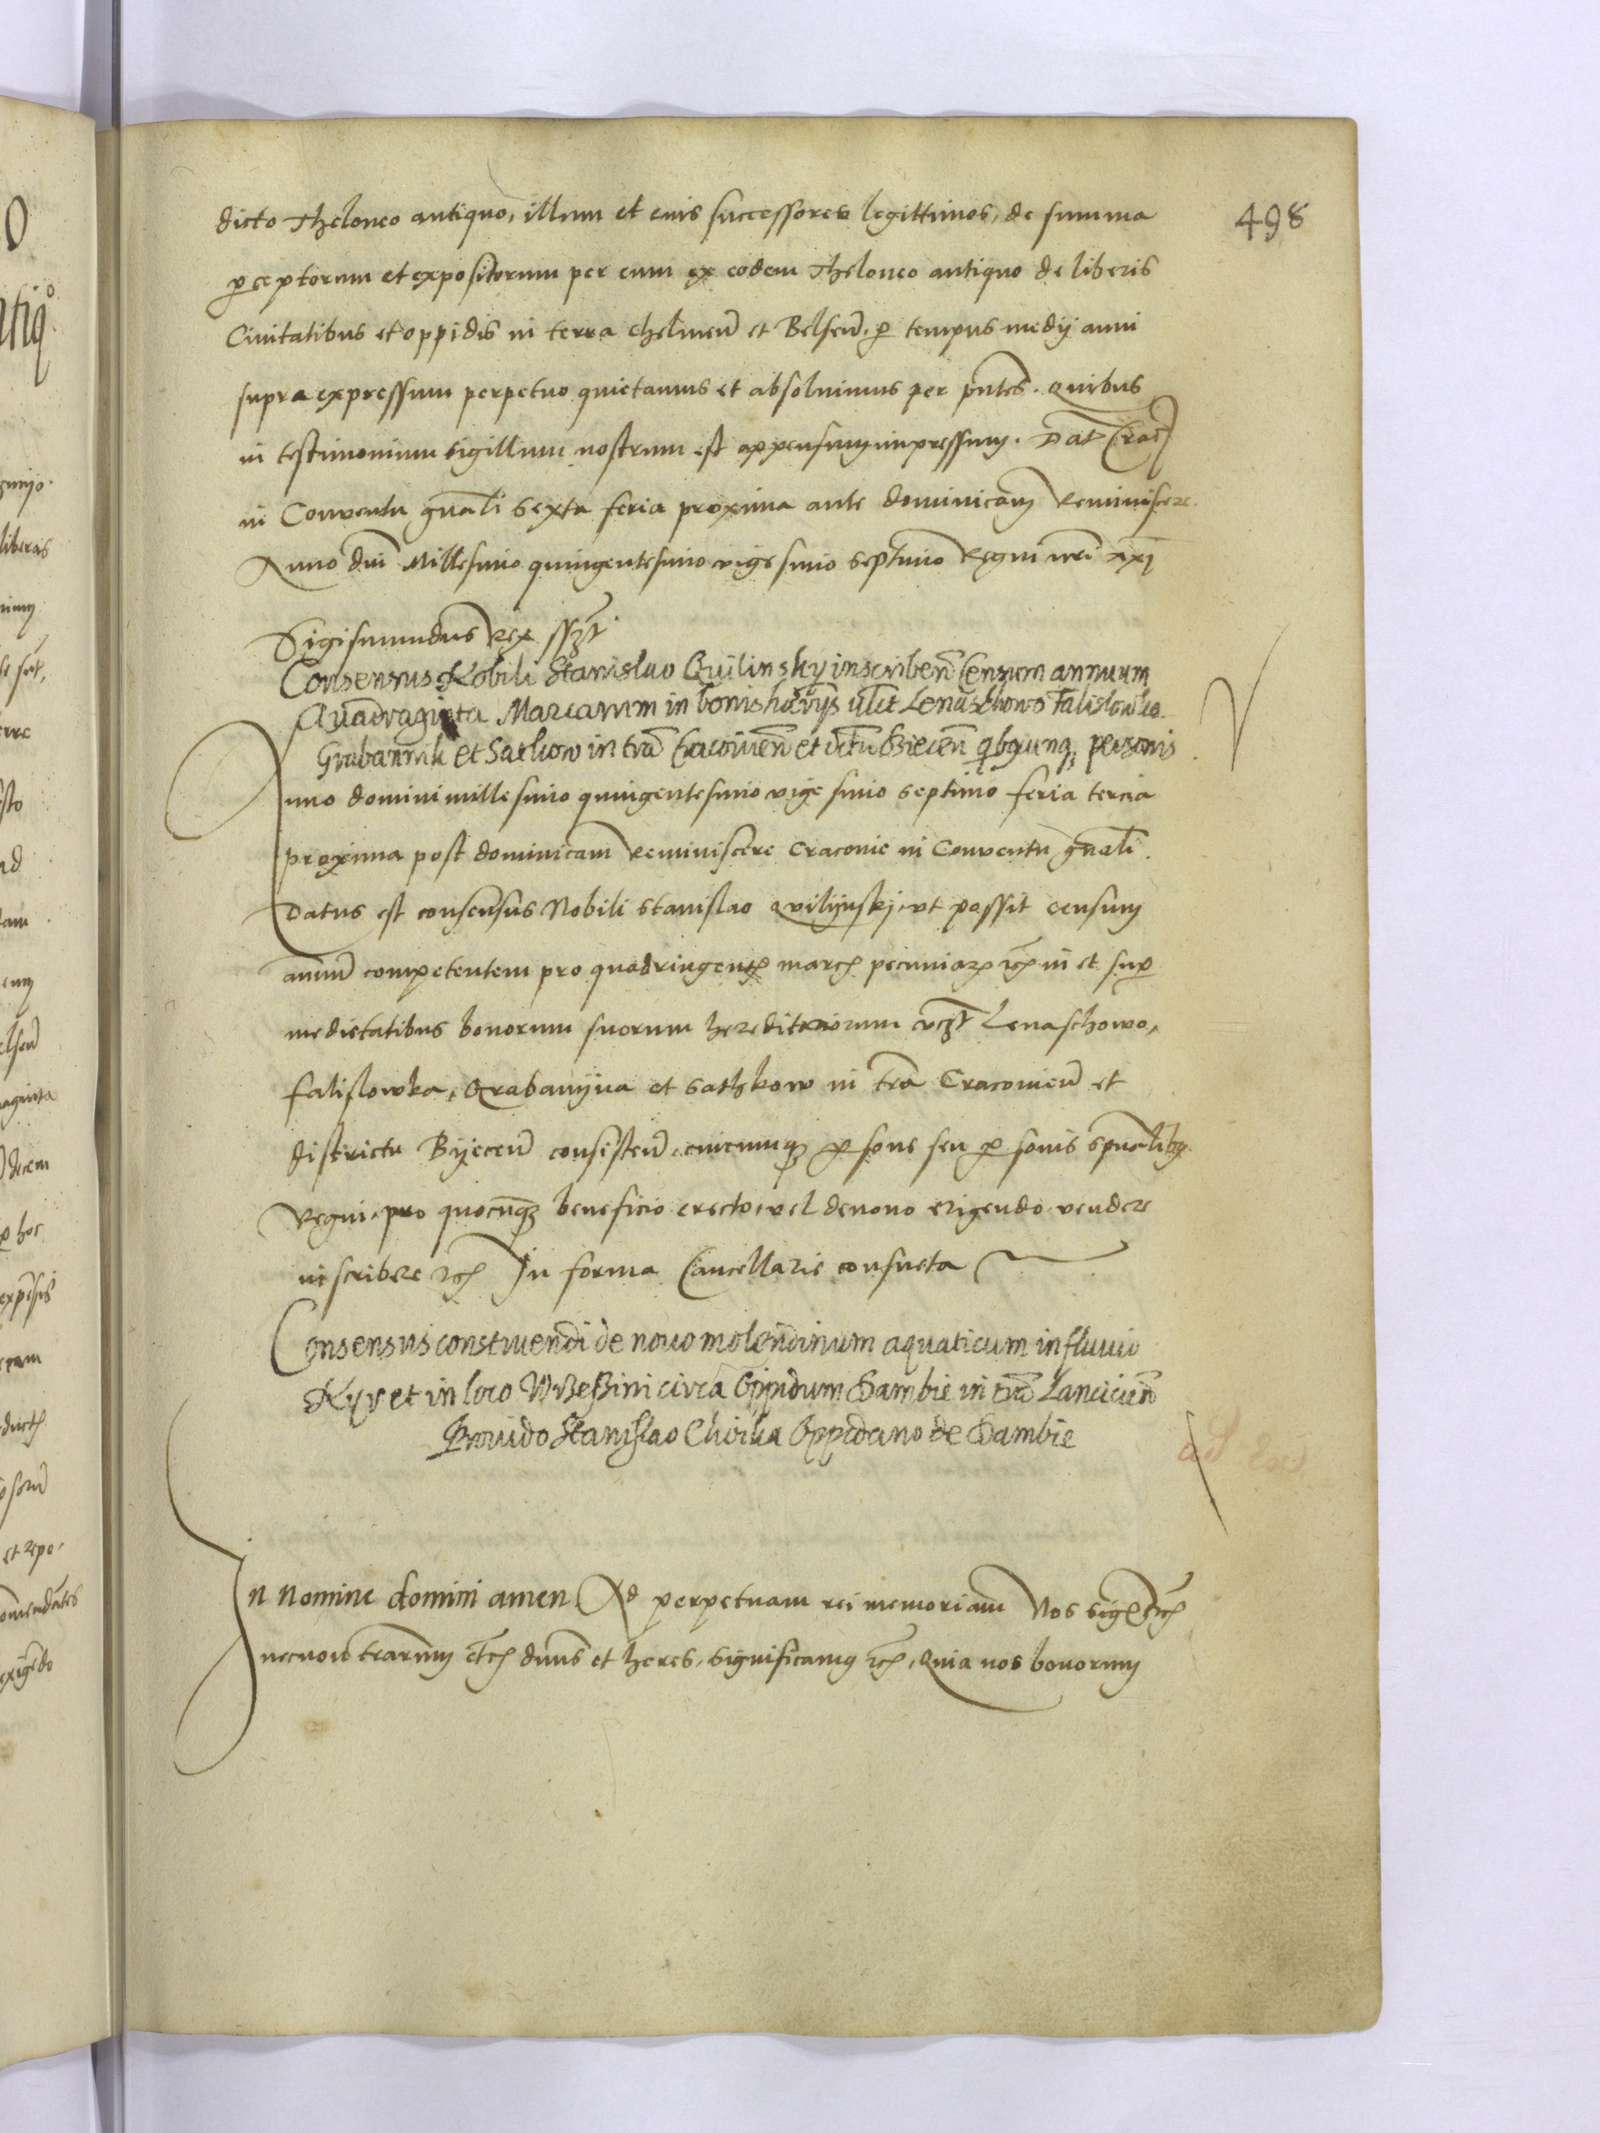 498
dicto Theloneo antiquo, illum et euis successores legittimos, de summa
perceptorum et expositorum per eum ex eodem Theloneo antiquo de liberis
Ciuitatibus et oppidis in terra Chelmen̄ et Belsen̄. ꝑ tempus medij anni
supra expressum perpetuo quietamus et absoluimus per pn̄tes. Quibus
in testimonium sigillum nostrum est appensum impressum. Dat Crac̄
in Conuentu gn̄ali sexta feria proxima ante dominicam Reminiscere.
Anno dn̄i Millesimo quingentesimo vigesimo septimo Regni nr̄i xxj
Sigismundus Rex sszt
Consensus Nobili Stanislao Quilinsky inscriben̄ Censum annuum
Quadraginta Marcarum in bonis hæred̄rijs vłet Lenaschowo Falislowka
Grabanina et Sathow in trā Cracouien̄ et dr̄tu Biecen̄ qbqunq; personis
Anno domini millesimo quingentesimo vigesimo septimo feria tercia
proxima post dominicam Reminiscere Cracouie in Conuentu gn̄ali.
Datus est consensus Nobili Stanislao Quilijnskj, vt possit censum
annuū competentem pro quadringentis marcis pecuniarum etc in et super
medietatibus bonorum suorum hereditariorum vczt Lenaschowo,
Falislowka, Grabanijna et Sathkow in trā Cracouien̄ et
districtu Byecen̄ consisten̄. cuicunqꝫ ꝑsone seu ꝑsonis spūalibꝫ
Regni, pro quocunqꝫ beneficio erecto, vel denouo erigendo vendere
inscribere etc In forma Cancellarie consueta
Consensus construendi de nouo molendinum aquaticum in fluuio
Nyr et in loco Wrzessini circa Oppidum Dambie in trā Lancicien̄
Prouido Stanislao Chwila Oppidano de Dambie
In Nomine domini amen. Ad perpetuam rei memoriam Nos Sigs etc
necnon trarum etc dn̄us et heres, significamus etc, Quia nos bonorum